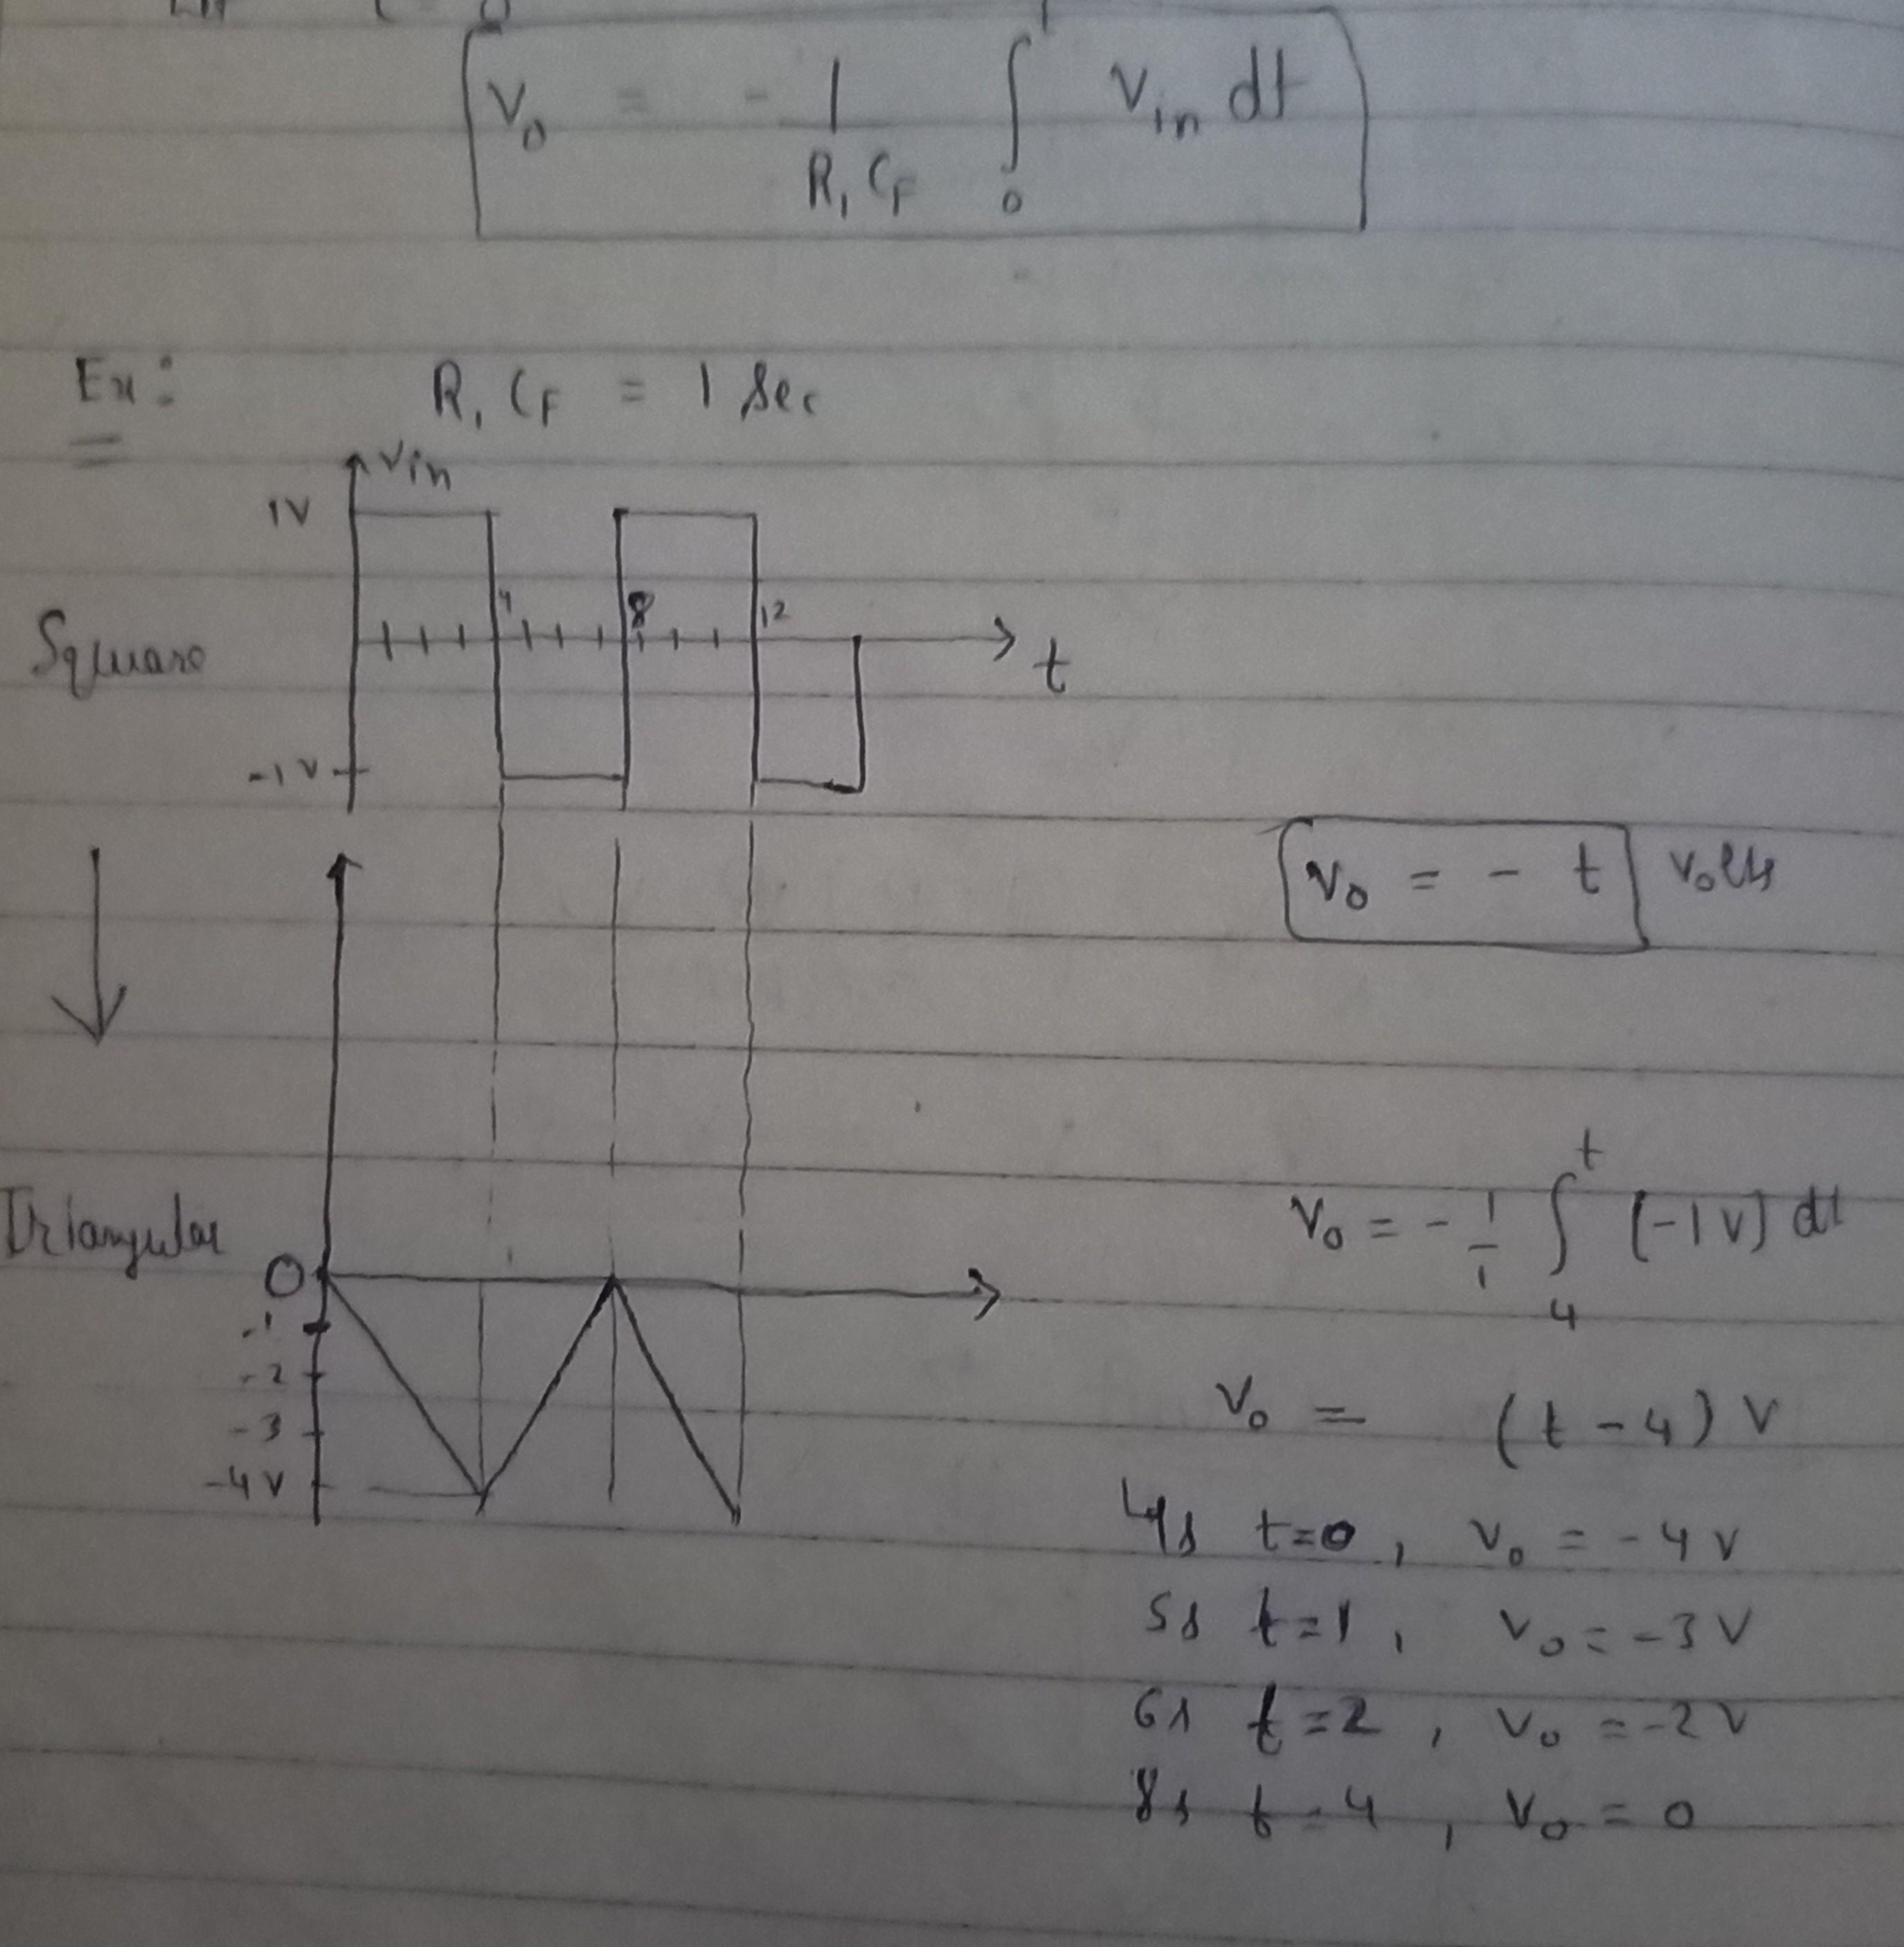 V₀ = - 1/(R₁ C_F) ∫₀ᵗ Vᵢₙ dt
Ex: R₁ C_F = 1 Sec
Vin
1V
4 8 12
Square
t
-1V
V₀ = - t volts
Triangular
0
-1
-2
-3
-4V
V₀ = - 1/1 ∫₄ᵗ (-1V) dt
V₀ = (t - 4) V
4s t=0, V₀ = -4V
5s t=1, V₀ = -3V
6s t=2, V₀ = -2V
8s t=4, V₀ = 0